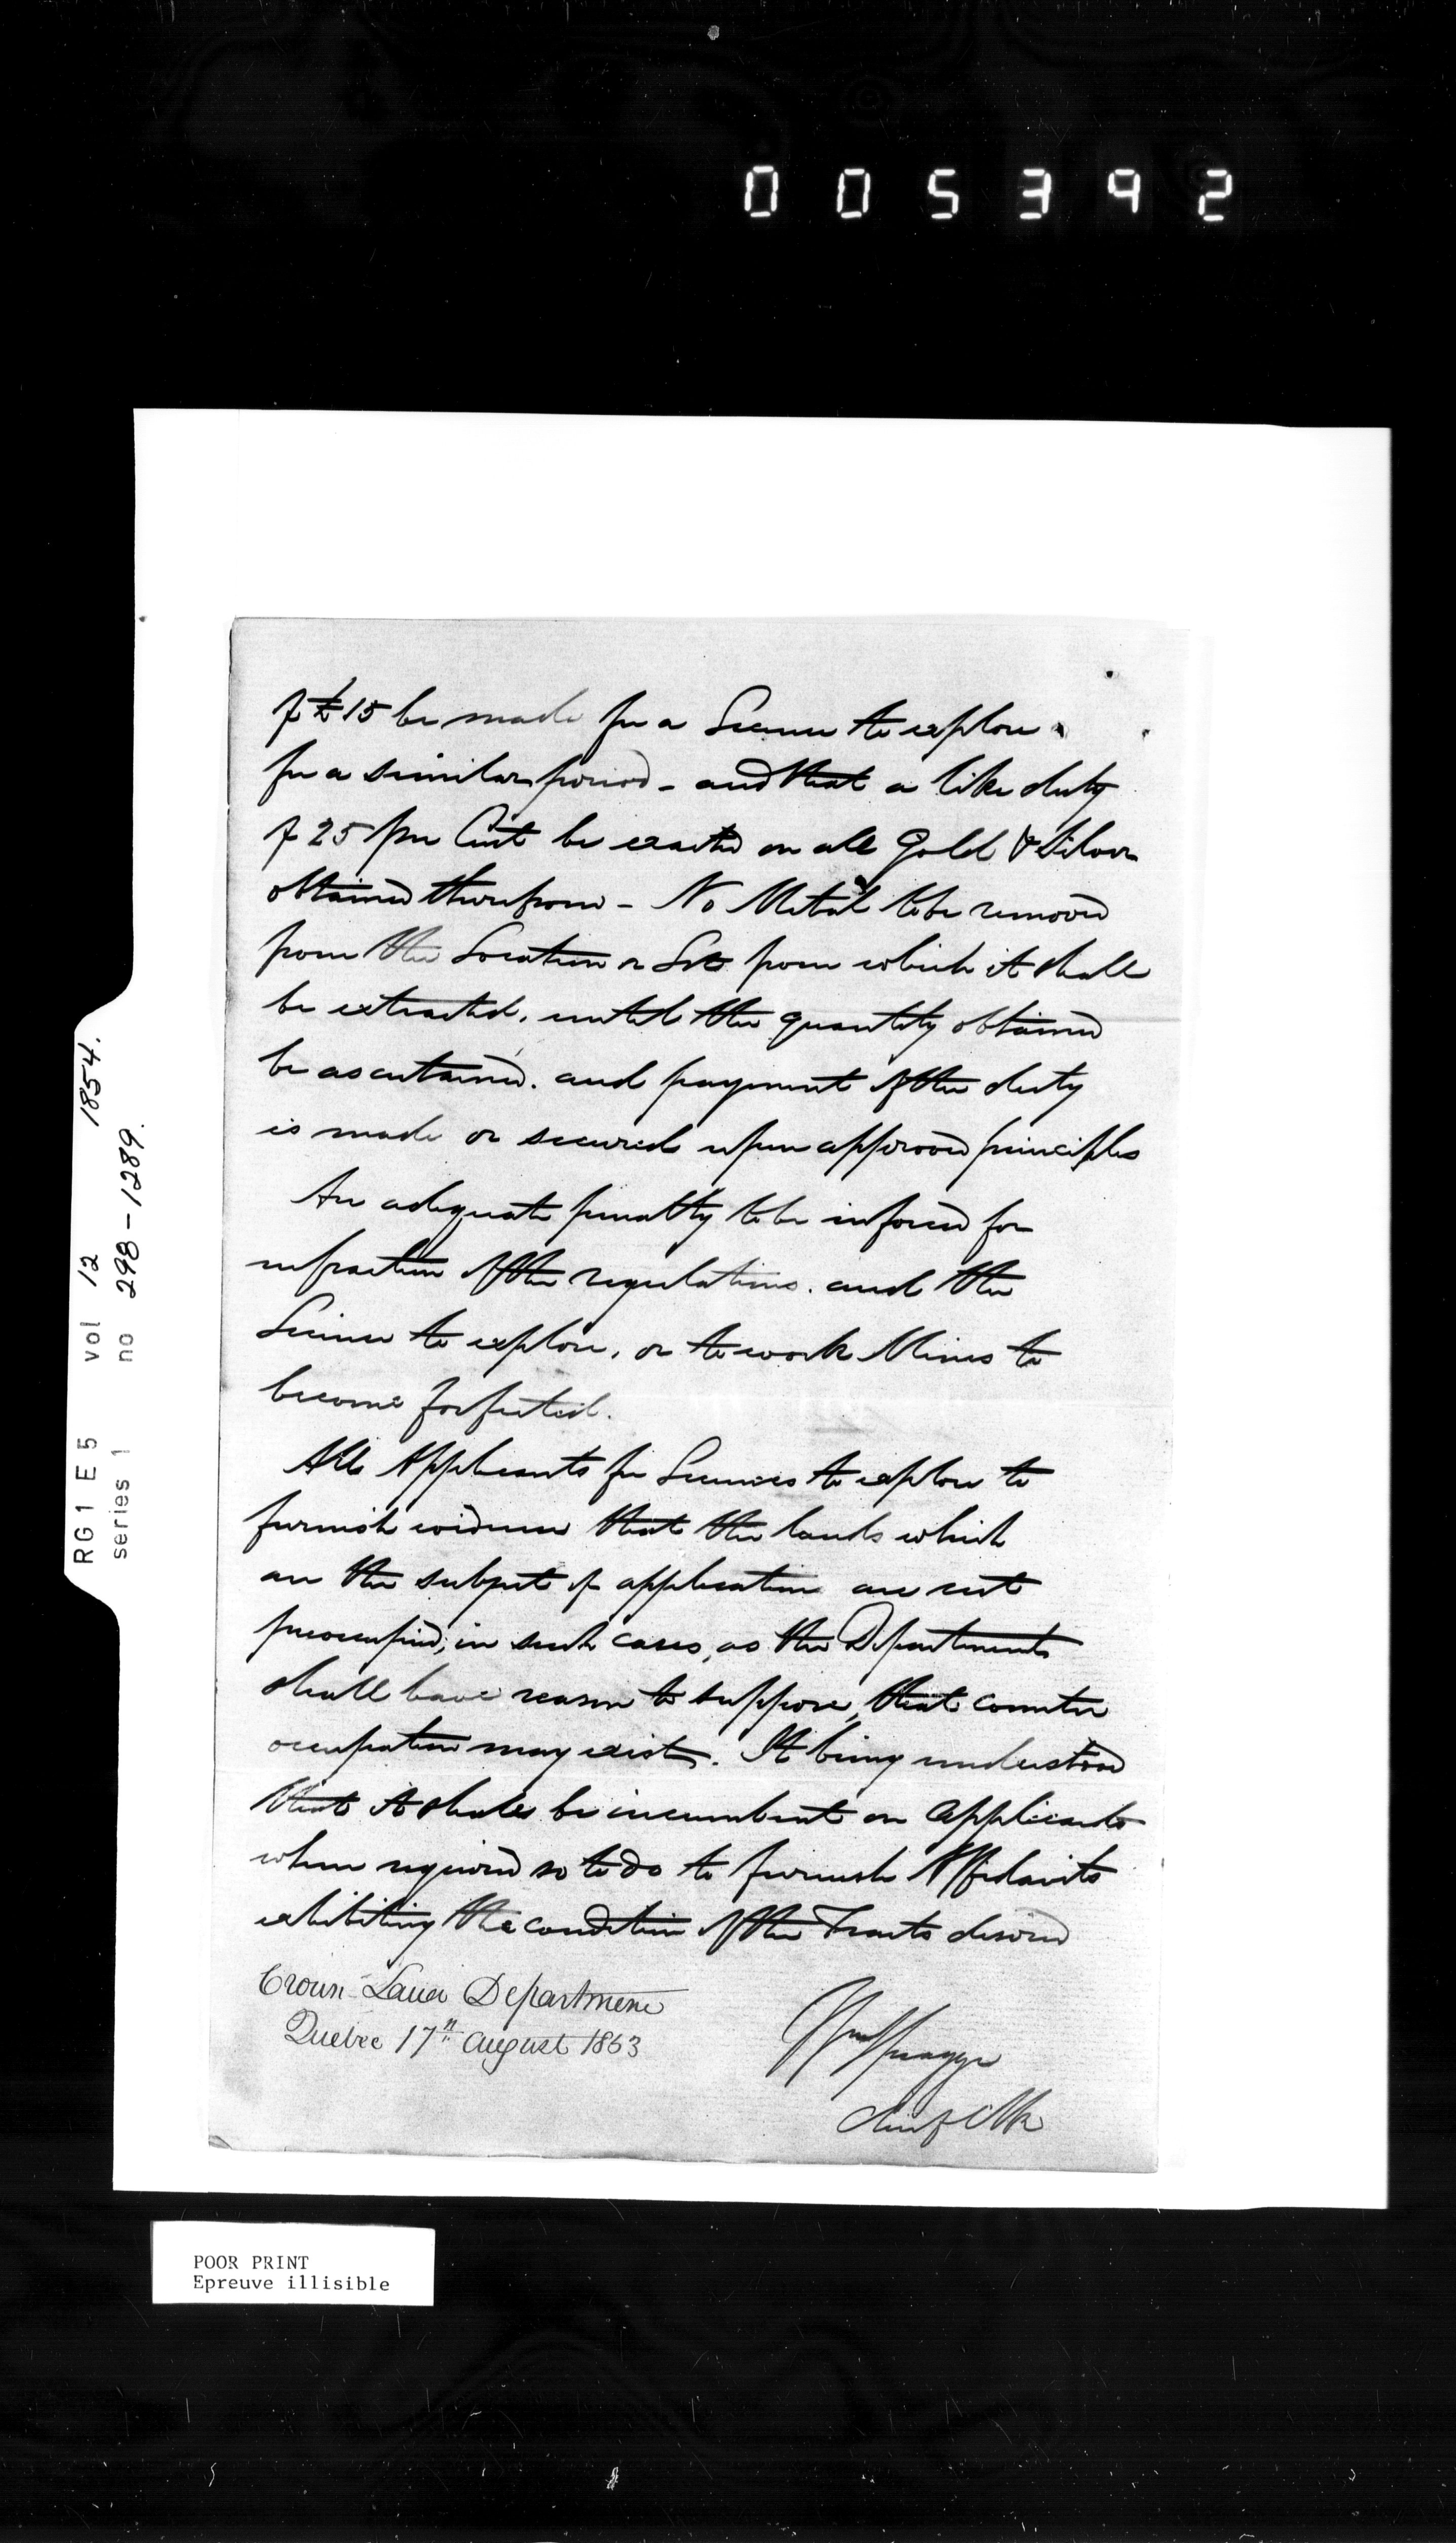 005392
of £15 be made for a License to explore
for a similar period - and that a like duty
of 25 per Cent be exacted on all Gold & Silver
obtained therefrom - No Metal to be removed
from the Location or Lot from which it shall
be extracted, until the quantity obtained
be ascertained. and payment of the duty
is made or secured upon approved principles
An adequate penalty to be inforced for
infraction of the regulations. and the
License to explore, or to work Mines to
become forfeited.
All Applicants for Licenses to explore to
furnish evidence that the lands which
are the subject of application are not
preoccupied, in such cases, as the Departments
shall have reason to suppose, that counter
occupation may exist. It being understood
that it shall be incumbent on applicants
when required so to do to furnish Affidavits
exhibiting the condition of the Tracts desired
Crown Land Department
Quebec 17th August 1863
Spragge
Chief Clk
RG1 E5 vol 12 1854.
series 1 no 298-1289.
POOR PRINT
Epreuve illisible